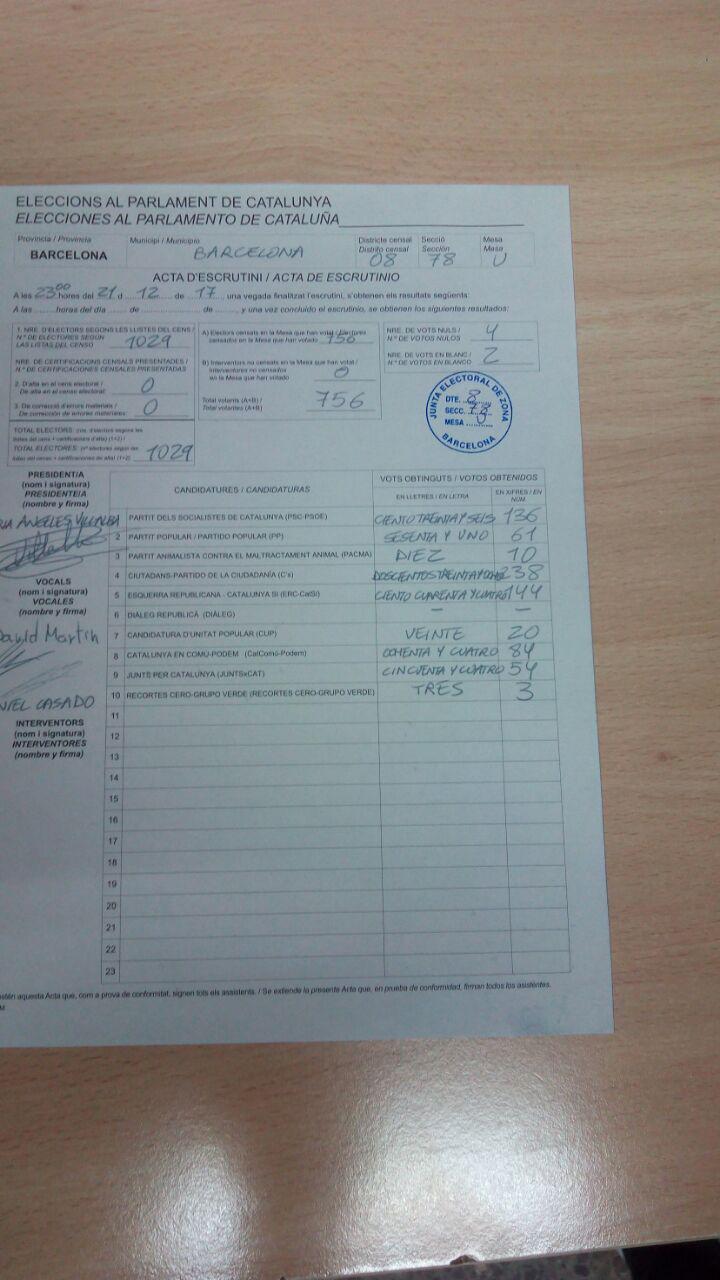 ELECCIONS AL PARLAMENT DE CATALUNYA
ELECCIONES AL PARLAMENTO DE CATALUÑA
Província / Provincia Municipi / Municipio Districte censal Secció Mesa
BARCELONA BARCELONA Distrito censal Sección Mesa
08 78 U
ACTA D'ESCRUTINI / ACTA DE ESCRUTINIO
A les 23 00 hores del 21 d 12 de 17, una vegada finalitzat l'escrutini, s'obtenen els resultats següents:
A las ........ horas del día ........ de ........ de ........, y una vez concluido el escrutinio, se obtienen los siguientes resultados:
1. NRE. D'ELECTORS SEGONS LES LLISTES DEL CENS /
N.º DE ELECTORES SEGÚN
LAS LISTAS DEL CENSO 1029
NRE. DE CERTIFICACIONS CENSALS PRESENTADES /
N.º DE CERTIFICACIONES CENSALES PRESENTADAS
2. D'alta en el cens electoral /
De alta en el censo electoral: 0
3. De correcció d'errors materials /
De corrección de errores materiales: 0
TOTAL ELECTORS:
TOTAL ELECTORES: 1029
A) Electors censats en la Mesa que han votat / Electores
censados en la Mesa que han votado 756
B) Interventors no censats en la Mesa que han votat /
Interventores no censados
en la Mesa que han votado 0
Total votants (A+B) /
Total votantes (A+B) 756
NRE. DE VOTS NULS /
N.º DE VOTOS NULOS 4
NRE. DE VOTS EN BLANC /
N.º DE VOTOS EN BLANCO 2
JUNTA ELECTORAL DE ZONA
DTE. 8
SECC. 78
MESA U
BARCELONA
PRESIDENT/A
(nom i signatura)
PRESIDENTE/A
(nombre y firma)
ANGELES VILLALBA
VOCALS
(nom i signatura)
VOCALES
(nombre y firma)
David Martin
CASADO
INTERVENTORS
(nom i signatura)
INTERVENTORES
(nombre y firma)
CANDIDATURES / CANDIDATURAS VOTS OBTINGUTS / VOTOS OBTENIDOS
EN LLETRES / EN LETRA EN XIFRES / EN NÚM.
PARTIT DELS SOCIALISTES DE CATALUNYA (PSC-PSOE) CIENTO TREINTA Y SEIS 136
2 PARTIT POPULAR / PARTIDO POPULAR (PP) SESENTA Y UNO 61
3 PARTIT ANIMALISTA CONTRA EL MALTRACTAMENT ANIMAL (PACMA) DIEZ 10
4 CIUTADANS-PARTIDO DE LA CIUDADANÍA (C's) DOSCIENTOS TREINTA Y OCHO 238
5 ESQUERRA REPUBLICANA - CATALUNYA SÍ (ERC-CatSí) CIENTO CUARENTA Y CUATRO 144
6 DIÀLEG REPUBLICÀ (DIÀLEG) – –
7 CANDIDATURA D'UNITAT POPULAR (CUP) VEINTE 20
8 CATALUNYA EN COMÚ-PODEM (CatComú-Podem) OCHENTA Y CUATRO 84
9 JUNTS PER CATALUNYA (JUNTSxCAT) CINCUENTA Y CUATRO 54
10 RECORTES CERO-GRUPO VERDE (RECORTES CERO-GRUPO VERDE) TRES 3
11
12
13
14
15
16
17
18
19
20
21
22
23
aquesta Acta que, com a prova de conformitat, signen tots els assistents. / Se extiende la presente Acta que, en prueba de conformidad, firman todos los asistentes.